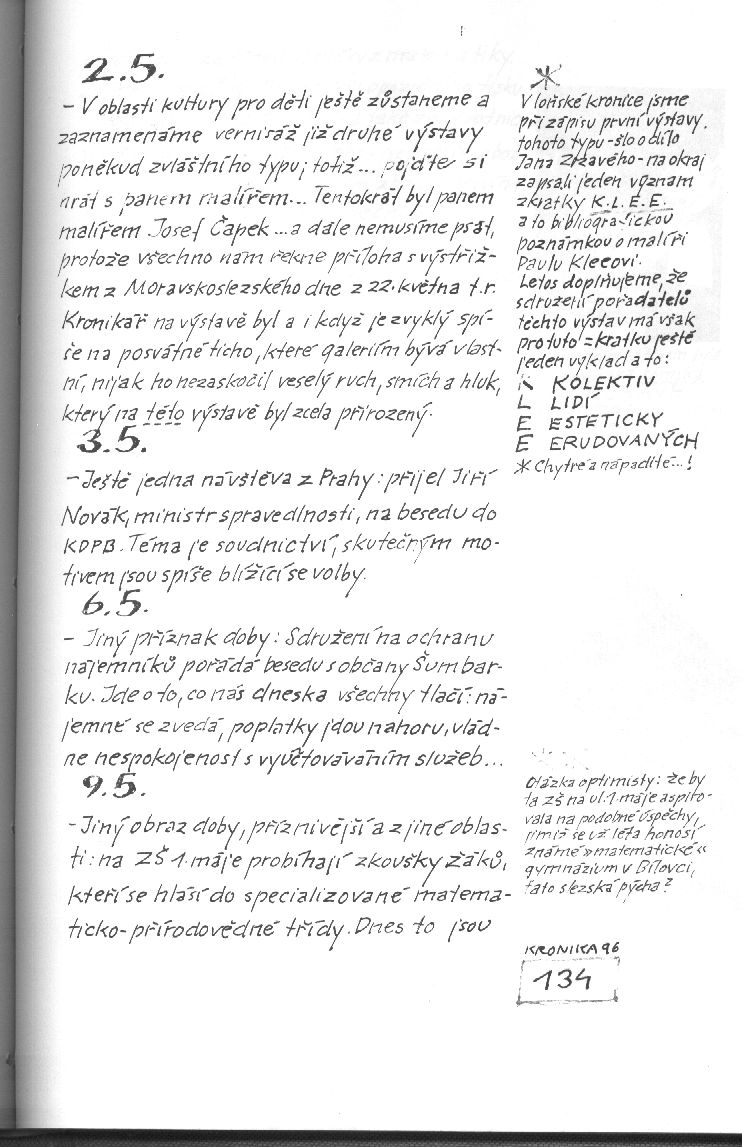 2.5.
- V oblasti kultury pro děti ještě zůstaneme a
zaznamenáme vernisáž již druhé výstavy
poněkud zvláštního typu; totiž... pojďte si
hrát s panem malířem... Tentokrát byl panem
malířem Josef Čapek ... a dále nemusíme psát,
protože všechno nám řekne příloha s výstřiž-
kem z Moravskoslezského dne z 22. května t.r.
Kronikář na výstavě byl a i když je zvyklý spí-
še na posvátné ticho, které galeriím bývá vlast-
ní, nijak ho nezaskočil veselý ruch, smích a hluk,
který na této výstavě byl zcela přirozený.
3.5.
- Ještě jedna návštěva z Prahy: přijel Jiří
Novák, ministr spravedlnosti, na besedu do
KDPB. Téma je soudnictví, skutečným mo-
tivem jsou spíše blížící se volby.
6.5.
- Jiný příznak doby: Sdružení na ochranu
nájemníků pořádá besedu s občany Šumbar-
ku. Jde o to, co nás dneska všechny tlačí: ná-
jemné se zvedá, poplatky jdou nahoru, vlád-
ne nespokojenost s vyúčtováváním služeb...
9.5.
- Jiný obraz doby, příznivější a z jiné oblas-
ti: na ZŠ 1. máje probíhají zkoušky žáků,
kteří se hlásí do specializované matema-
ticko-přírodovědné třídy. Dnes to jsou
*
V loňské kronice jsme
při zápisu první výstavy
tohoto typu - šlo o dílo
Jana Zrzavého - na okraj
zapsali jeden význam
zkratky K.L.E.E.
a to bibliografickou
poznámkou o malíři
Paulu Kleeovi.
Letos doplňujeme, že
sdružení pořadatelů
těchto výstav má však
pro tuto zkratku ještě
jeden výklad a to:
K KOLEKTIV
L LIDÍ
E ESTETICKY
E ERUDOVANÝCH
* Chytré a nápadité...!
Otázka optimisty: že by
ta ZŠ na ul. 1. máje aspiro-
vala na podobné úspěchy,
jimiž se už léta honosí
známé »matematické«
gymnázium v Bílovci,
tato slezská pýcha?
KRONIKA 96
134